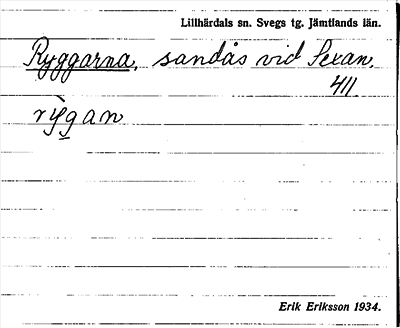 Lillhärdals sn. Svegs tg. Jämtlands län.
Ryggarna, sandås vid Sexan,
411
rỳgan
Erik Eriksson 1934.